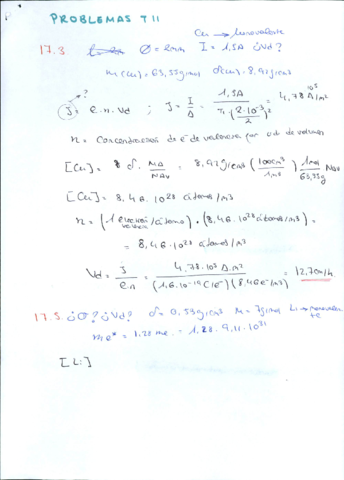 PROBLEMAS T11
Cu → monovalente
17.3 Ø = 2mm I = 1,5A ¿Vd?
m(Cu) = 63,55g/mol δ(Cu) = 8,92g/cm3
?
J = e.n.Vd ; J = I/A = 1,5A / π(2·10^-3/2)^2 = 4,78·10^5 A/m2
n = Concentración de e- de valencia por ud de volumen
[Cu] = δ · / NAV = 8,92g/cm3 (100cm3/1m3) 1mol/63,55g NAV
[Cu] = 8,46·10^28 átomos/m3
n = (1 electrón valencia/átomo) · (8,46·10^28 átomos/m3) =
= 8,46·10^28 átomos/m3
Vd = J/e.n = 4,78·10^5 A.m2 / (1,6·10^-19 C/e-)(8,46e-/m3) = 12,7cm/h
17.5 ¿σ? ¿Vd? δ = 0,53g/cm3 M = 7g/mol Li → monovalente
me* = 1,28 me = 1,28 · 9,11·10^31
[Li]